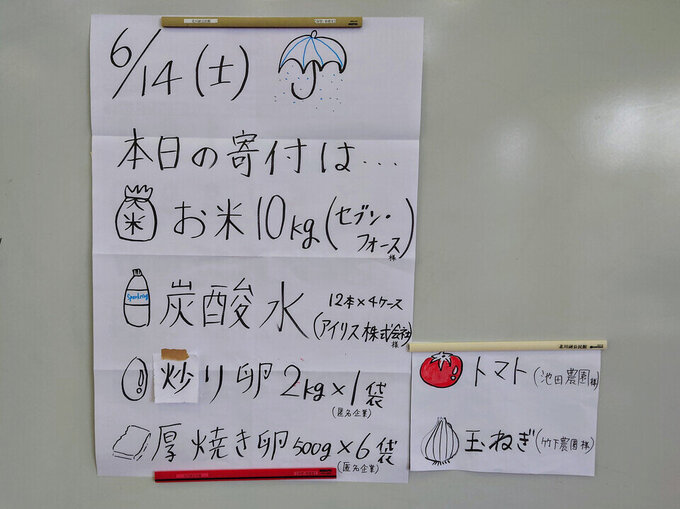 6/14(土)
本日の寄付は…
米 お米10kg(セブン・フォース様)
Sparkring 炭酸水 12本×4ケース
(アイリス株式会社様)
炒り卵2kg×1袋
(匿名企業)
厚焼き卵500g×6袋
(匿名企業)
トマト(池田農園様)
玉ねぎ(竹下農園様)